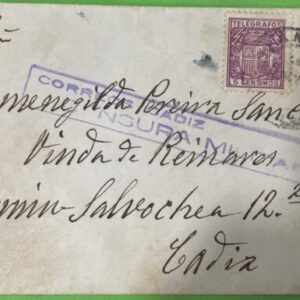 TELEGRAFOS
5 CENTIMOS
CORREOS CADIZ
NSURA MILITA
menegilda Pereira San
Vinda de Remares
min Salvochea 12. 2
Cadiz